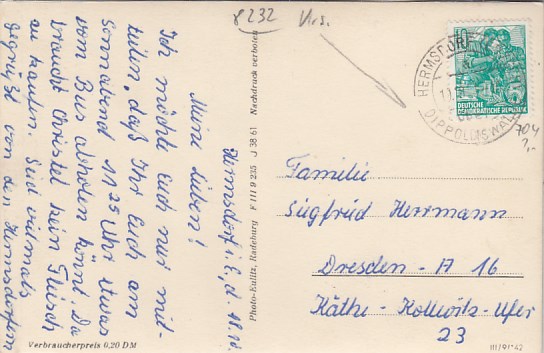 8232
Hermsdorf i. E., d. 18. VI.
Meine Lieben!
Ich möchte Euch nur mit-
teilen, daß Ihr Euch am
Sonnabend 11 25 Uhr etwas
vom Bus abholen könnt. Da
braucht Christel kein Fleisch
zu kaufen. Seid vielmals
gegrüßt von den Hermsdorfern
Verbraucherpreis 0,20 DM
Photo-Kulitz, Radeburg F III 9 235 J 38 61 Nachdruck verboten
HERMSDORF
DIPPOLDISWALDE
10
5
DEUTSCHE
DEMOKRATISCHE REPUBLIK
704
Familie
Siegfried Herrmann
Dresden-A 16
Käthe-Kollwitz-Ufer
23
III/91*42